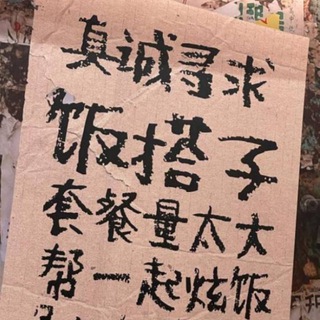 真诚寻求
饭搭子
套餐量太大
帮一起炫饭